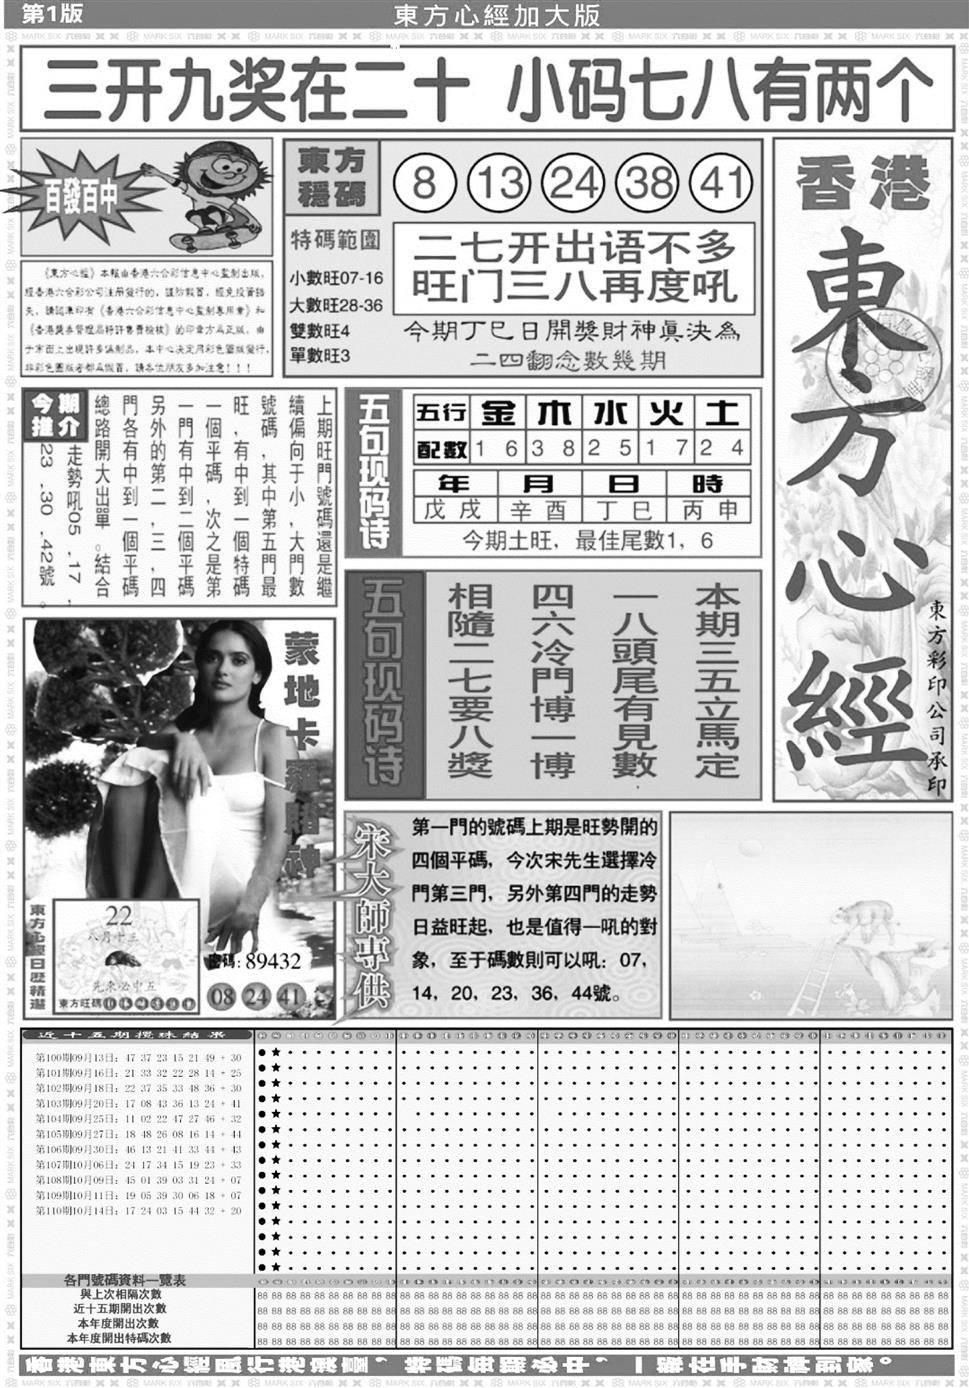 第1版
東方心經加大版
三开九奖在二十 小码七八有两个
百發百中
《東方心經》本報由香港六合彩信息中心監制出版，
經香港六合彩公司注册發行的，謹防假冒，經免投資錯
失，請認準印有《香港六合彩信息中心監制專用章》和
《香港獎券管理局特許售賣檢核》的印章方爲正版，由
于市面上出現許多偽制品，本中心决定用彩色圖版發行，
非彩色圖版者都爲假冒，請各位朋友多加注意！！！
東方
穩碼
8 13 24 38 41
特碼範圍
小數旺07-16
大數旺28-36
雙數旺4
單數旺3
二七开出语不多
旺门三八再度吼
今期丁巳日開獎財神真决為
二四翻念數幾期
香港
東方心經
東方彩印公司承印
今期
推介
上期旺門號碼還是繼
續偏向于小，大門數
號碼，其中第五門最
旺，有中到一個特碼
一個平碼，次之是第
一門有中到二個平碼
另外的第二，三，四
門各有中到一個平碼
總路開大出單。結合
走勢吼05，17，
23，30，42號。
五句现码诗
五行 金 木 水 火 土
配數 1 6 3 8 2 5 1 7 2 4
年 月 日 時
戊戌 辛酉 丁巳 丙申
今期土旺，最佳尾數1，6
五句现码诗
本期三五立馬定
一八頭尾有見數
四六冷門博一博
相隨二七要八獎
蒙地卡羅賭神
東方心經日歷精選
22
八月十三
先來必中五
東方旺碼
密碼：89432
08 24 41
宋大師專供
第一門的號碼上期是旺勢開的
四個平碼，今次宋先生選擇冷
門第三門，另外第四門的走勢
日益旺起，也是值得一吼的對
象，至于碼數則可以吼：07，
14，20，23，36，44號。
近十五期攪珠結果
第100期09月13日：47 37 23 15 21 49 + 30
第101期09月16日：21 33 32 22 28 14 + 25
第102期09月18日：22 37 35 33 48 36 + 30
第103期09月20日：17 08 43 36 13 24 + 41
第104期09月25日：11 02 22 47 27 46 + 32
第105期09月27日：18 48 26 08 16 14 + 44
第106期09月30日：46 13 21 41 33 44 + 43
第107期10月06日：24 17 34 15 19 23 + 33
第108期10月09日：45 01 39 03 31 24 + 07
第109期10月11日：19 05 39 30 06 18 + 07
第110期10月14日：17 24 03 15 44 32 + 20
各門號碼資料一覽表
與上次相隔次數
近十五期開出次數
本年度開出次數
本年度開出特碼次數
香港東方心經風行港澳臺，特碼每期必中，一報在手財神到家。